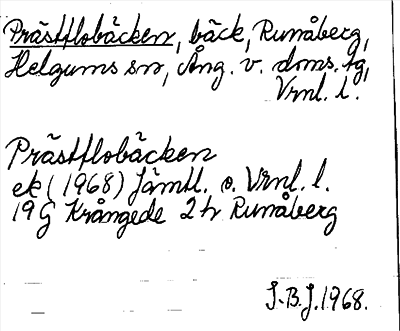 Prästflobäcken, bäck, Runåberg,
Helgums sn, Ång. v. doms. tg,
Vrnl. l.
Prästflobäcken
ek (1968) Jämtl. o. Vrnl. l.
19G Krångede 2h Runåberg
S.B.J. 1968.